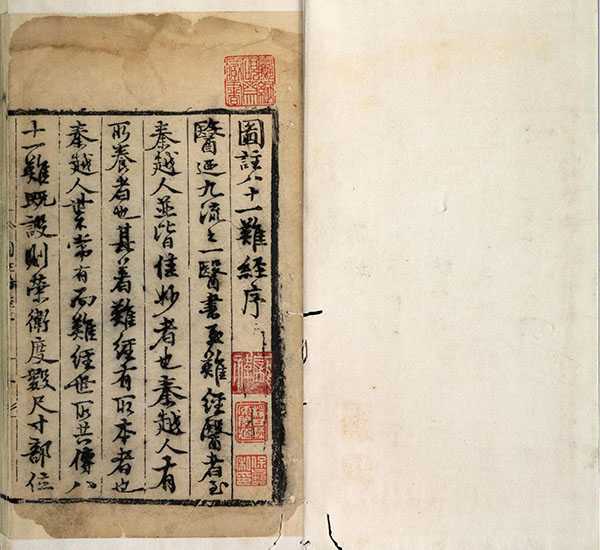 圖註八十一難經序
醫迺九流之一醫書難經醫者至
秦越人並皆佳妙者也秦越人有
所養者也其著難經有所本者也
秦越人常有而難經世所共傳八
十一難既設則榮衛度數尺寸部位